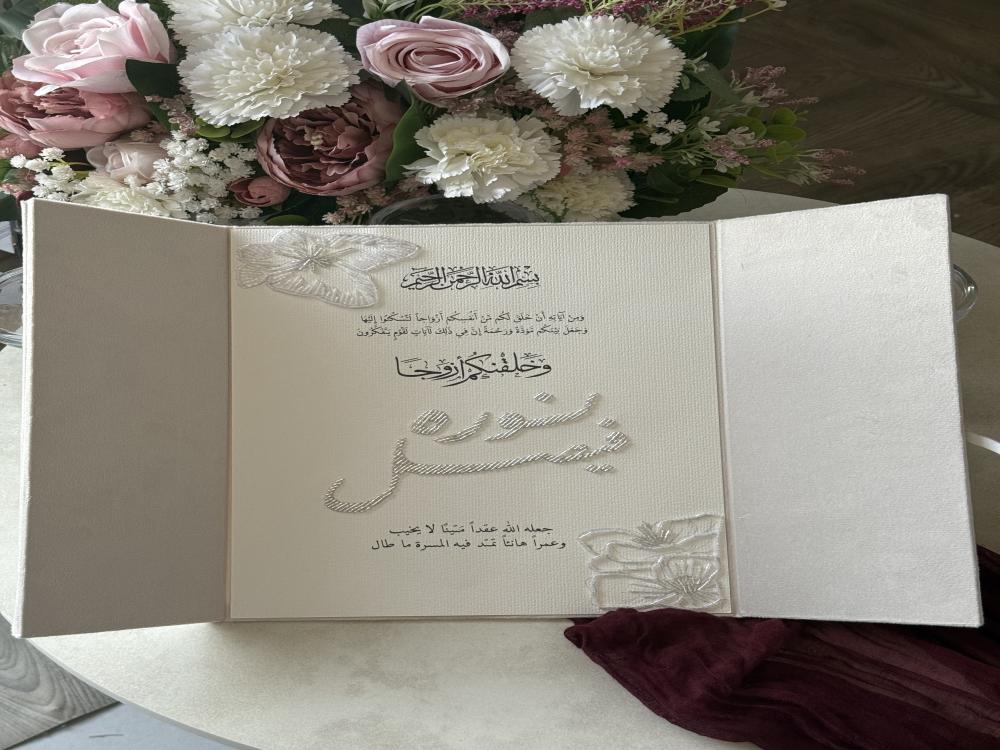 بسم الله الرحمن الرحيم
ومن آياته أن خلق لكم من أنفسكم أزواجاً لتسكنوا إليها
وجعل بينكم مودة ورحمة إن في ذلك لآيات لقوم يتفكرون
وَخَلَقْنَٰكُمْ أَزْوَٰجًا
نوره
فيصل
جعله الله عقداً متينًا لا يخيب
وعمراً هانئاً تمتد فيه المسرة ما طال